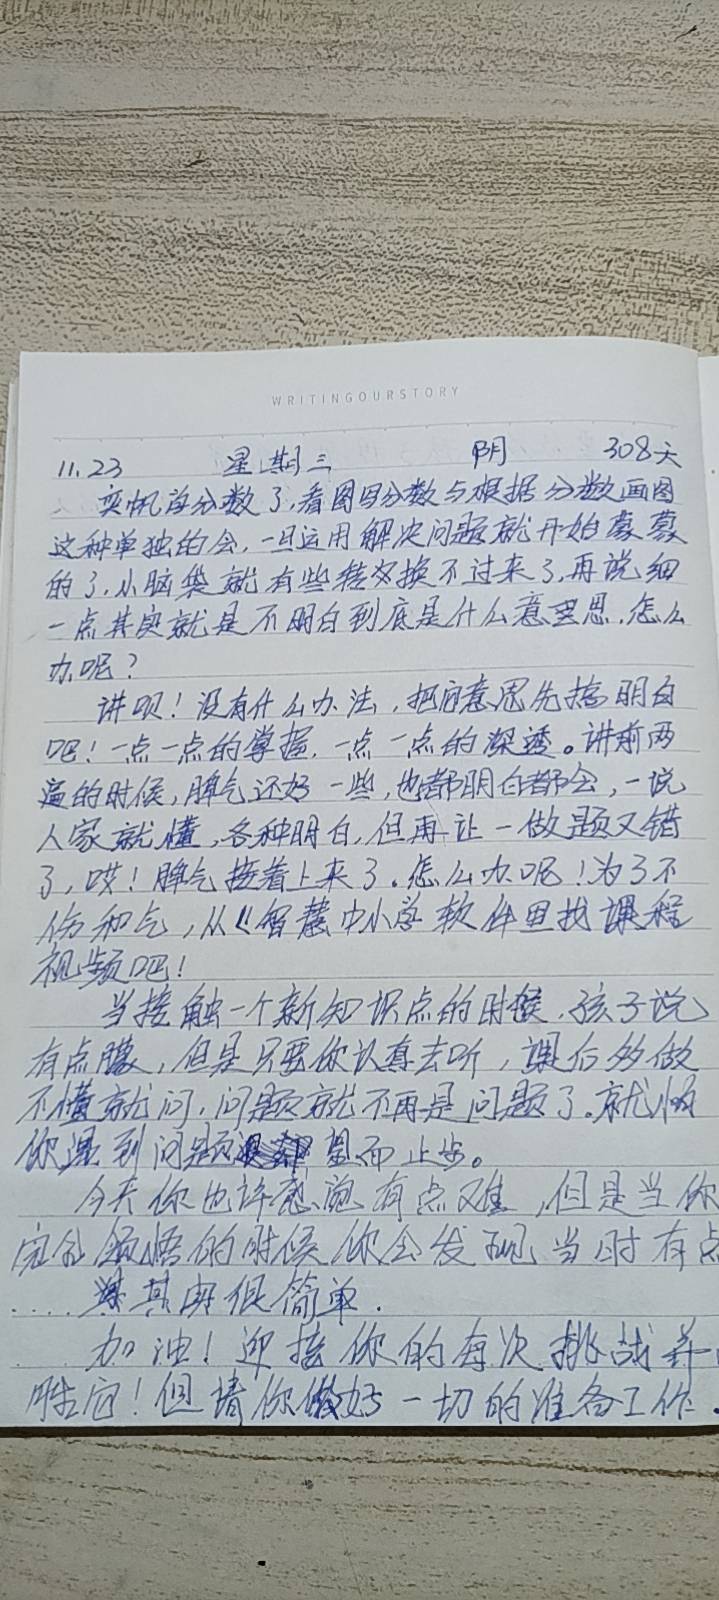 WRITINGOURSTORY
11.23 星期三 阴 308天
分数了,看图写分数与根据分数画图
这种单独的会,一旦运用解决问题就开始蒙蒙
的了,小脑袋就有些转换不过来了,再说细
一点其实就是不明白到底是什么意思,怎么
办呢?
讲呗!没有什么办法,把意思先搞明白
吧!一点一点的掌握,一点一点的深透。讲前两
遍的时候,脾气还好一些,也都明白都会,一说
人家就懂,各种明白,但再让一做题又错
了,哎!脾气接着上来了。怎么办呢!为了不
伤和气,从《智慧中小学软件里找课程
视频吧!
当接触一个新知识点的时候,孩子说
有点朦,但是只要你认真去听,课后多做
不懂就问,问题就不再是问题了。就怕
你遇到问题望而止步。
今天你也许感觉有点难,但是当你
完全领悟的时候你会发现当时有点
其实很简单.
加油!迎接你的每次挑战并
胜它!但请你做好一切的准备工作.